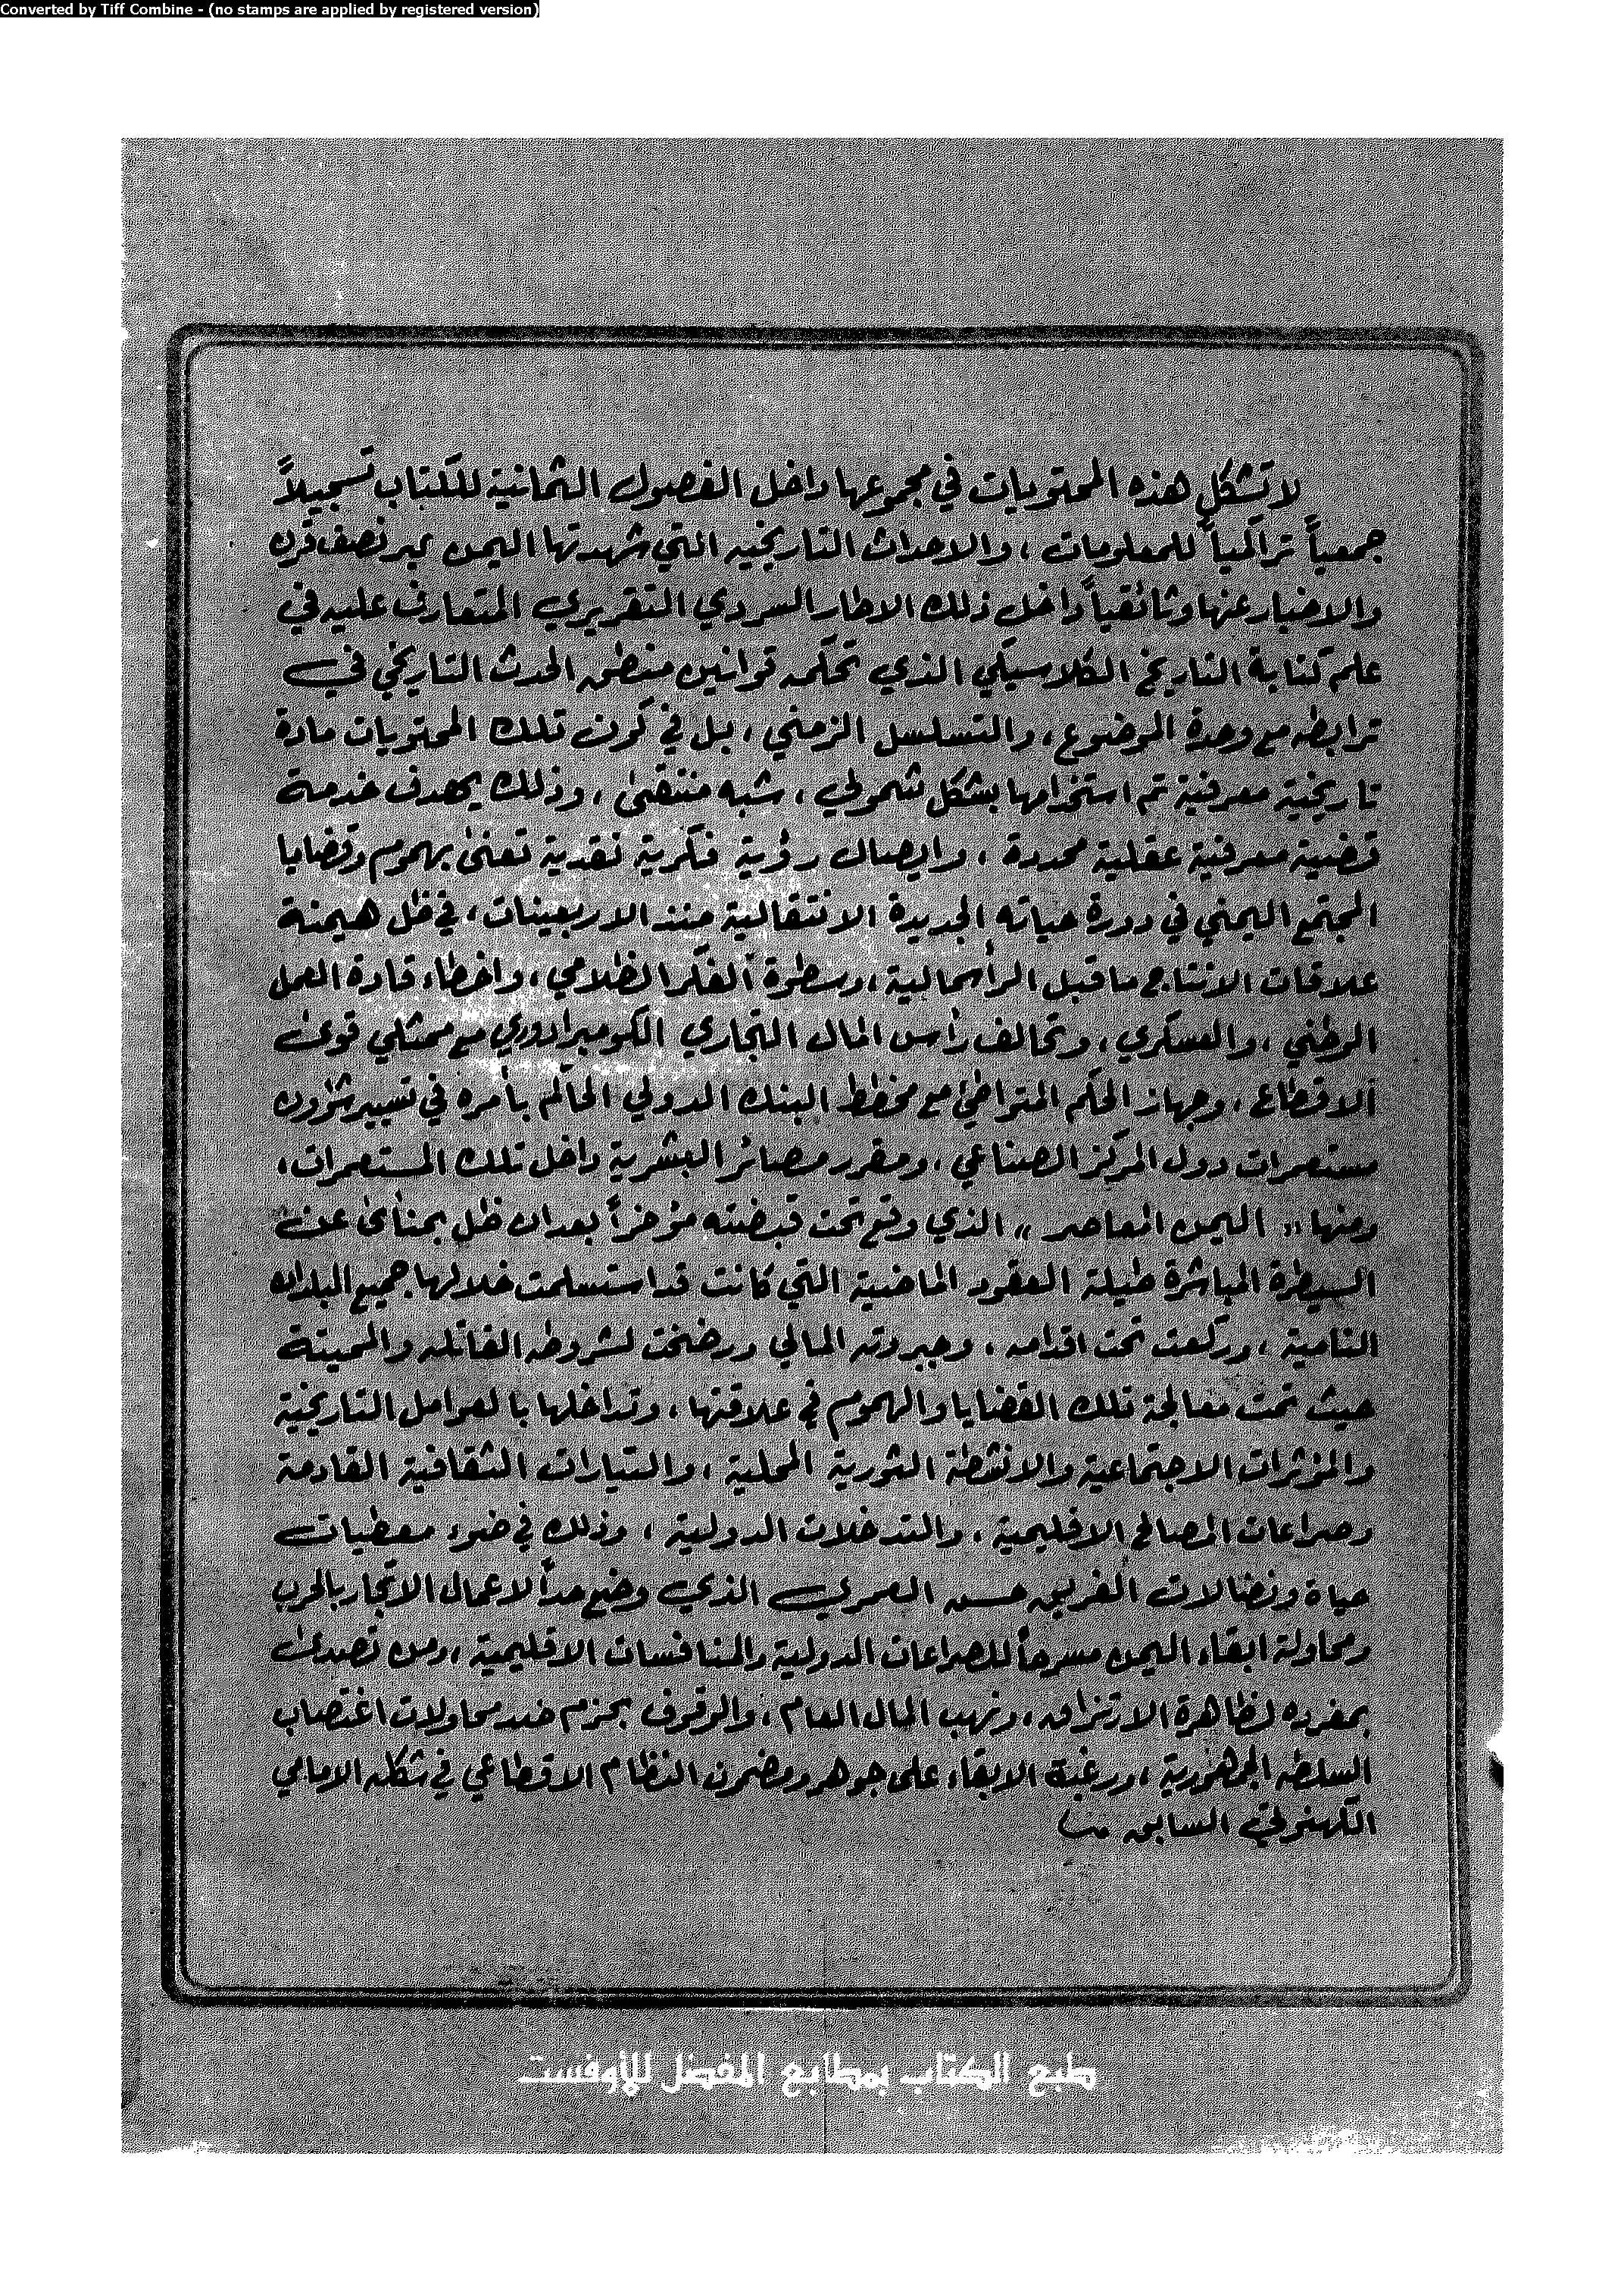 Converted by Tiff Combine - (no stamps are applied by registered version)
لا تشكل هذه المحتويات في مجموعها داخل الفصول الثمانية للكتاب تسجيلاً
جمعياً تراكمياً للمعلومات ، والاحداث التاريخيه التي شهدتها اليمن عبر نصف قرن
والاخبار عنها وثائقياً داخل ذلك الاطار السردي التقريري المتعارف عليه في
علم كتابة التاريخ الكلاسيكي الذي تحكمه قوانين منطق الحدث التاريخي في
ترابطه مع وحدة الموضوع ، والتسلسل الزمني ، بل في كون تلك المحتويات مادة
تاريخية معرفية تم استخدامها بشكل شمولي ، شبه منتقىٰ ، وذلك بهدف خدمة
قضية معرفية عقلية محددة ، وايصال رؤية فكرية نقدية تعنىٰ بهموم وقضايا
المجتمع اليمني في دورة حياته الجديدة الانتقالية منذ الاربعينات ، في ظل هيمنة
علاقات الانتاج ما قبل الرأسمالية ، وسطوة الفكر الظلامي ، واخطاء قادة العمل
الوطني ، والعسكري ، وتحالف رأس المال التجاري الكومبرادوري مع ممثلي قوىٰ
الاقطاع ، وجهاز الحكم المتواطئ مع مخطط البنك الدولي الحاكم بأمره في تسيير شؤون
مستعمرات دول المركز الصناعي ، ومقرر مصائر البشرية داخل تلك المستعمرات ،
ومنها « اليمن المعاصر » الذي وقع تحت قبضته مؤخراً بعد ان ظل بمنأىٰ عن
السيطرة المباشرة طيلة العقود الماضية التي كانت قد استسلمت خلالها جميع البلدان
النامية ، وركعت تحت اقدامه ، وجبروته المالي ورضخت لشروطه القاتله والمميتة
حيث تمت معالجة تلك القضايا والهموم في علاقتها ، وتداخلها بالعوامل التاريخية
والمؤثرات الاجتماعية والانشطة الثورية المحلية ، والتيارات الثقافية القادمة
وصراعات المصالح الاقليمية ، والتدخلات الدولية ، وذلك في ضوء معطيات
حياة ونضالات الفريق حسن العمري الذي وضع حداً لاعمال الاتجار بالحرب
ومحاولة ابقاء اليمن مسرحاً للصراعات الدولية والمنافسات الاقليمية ، ومن تصدىٰ
بمفرده لظاهرة الارتزاق ، ونهب المال العام ، والوقوف بحزم ضد محاولات اغتصاب
السلطه الجمهورية ، ورغبة الابقاء على جوهر ومضمون النظام الاقطاعي في شكله الامامي
الكهنوتي السابق
طبع الكتاب بمطابع المفضل للأوفست